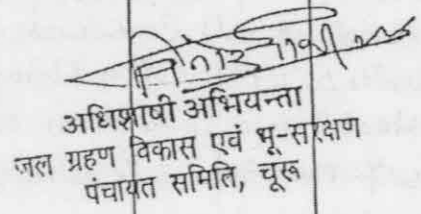 अधिशाषी अभियन्ता
जल ग्रहण विकास एवं भू-संरक्षण
पंचायत समिति, चूरू